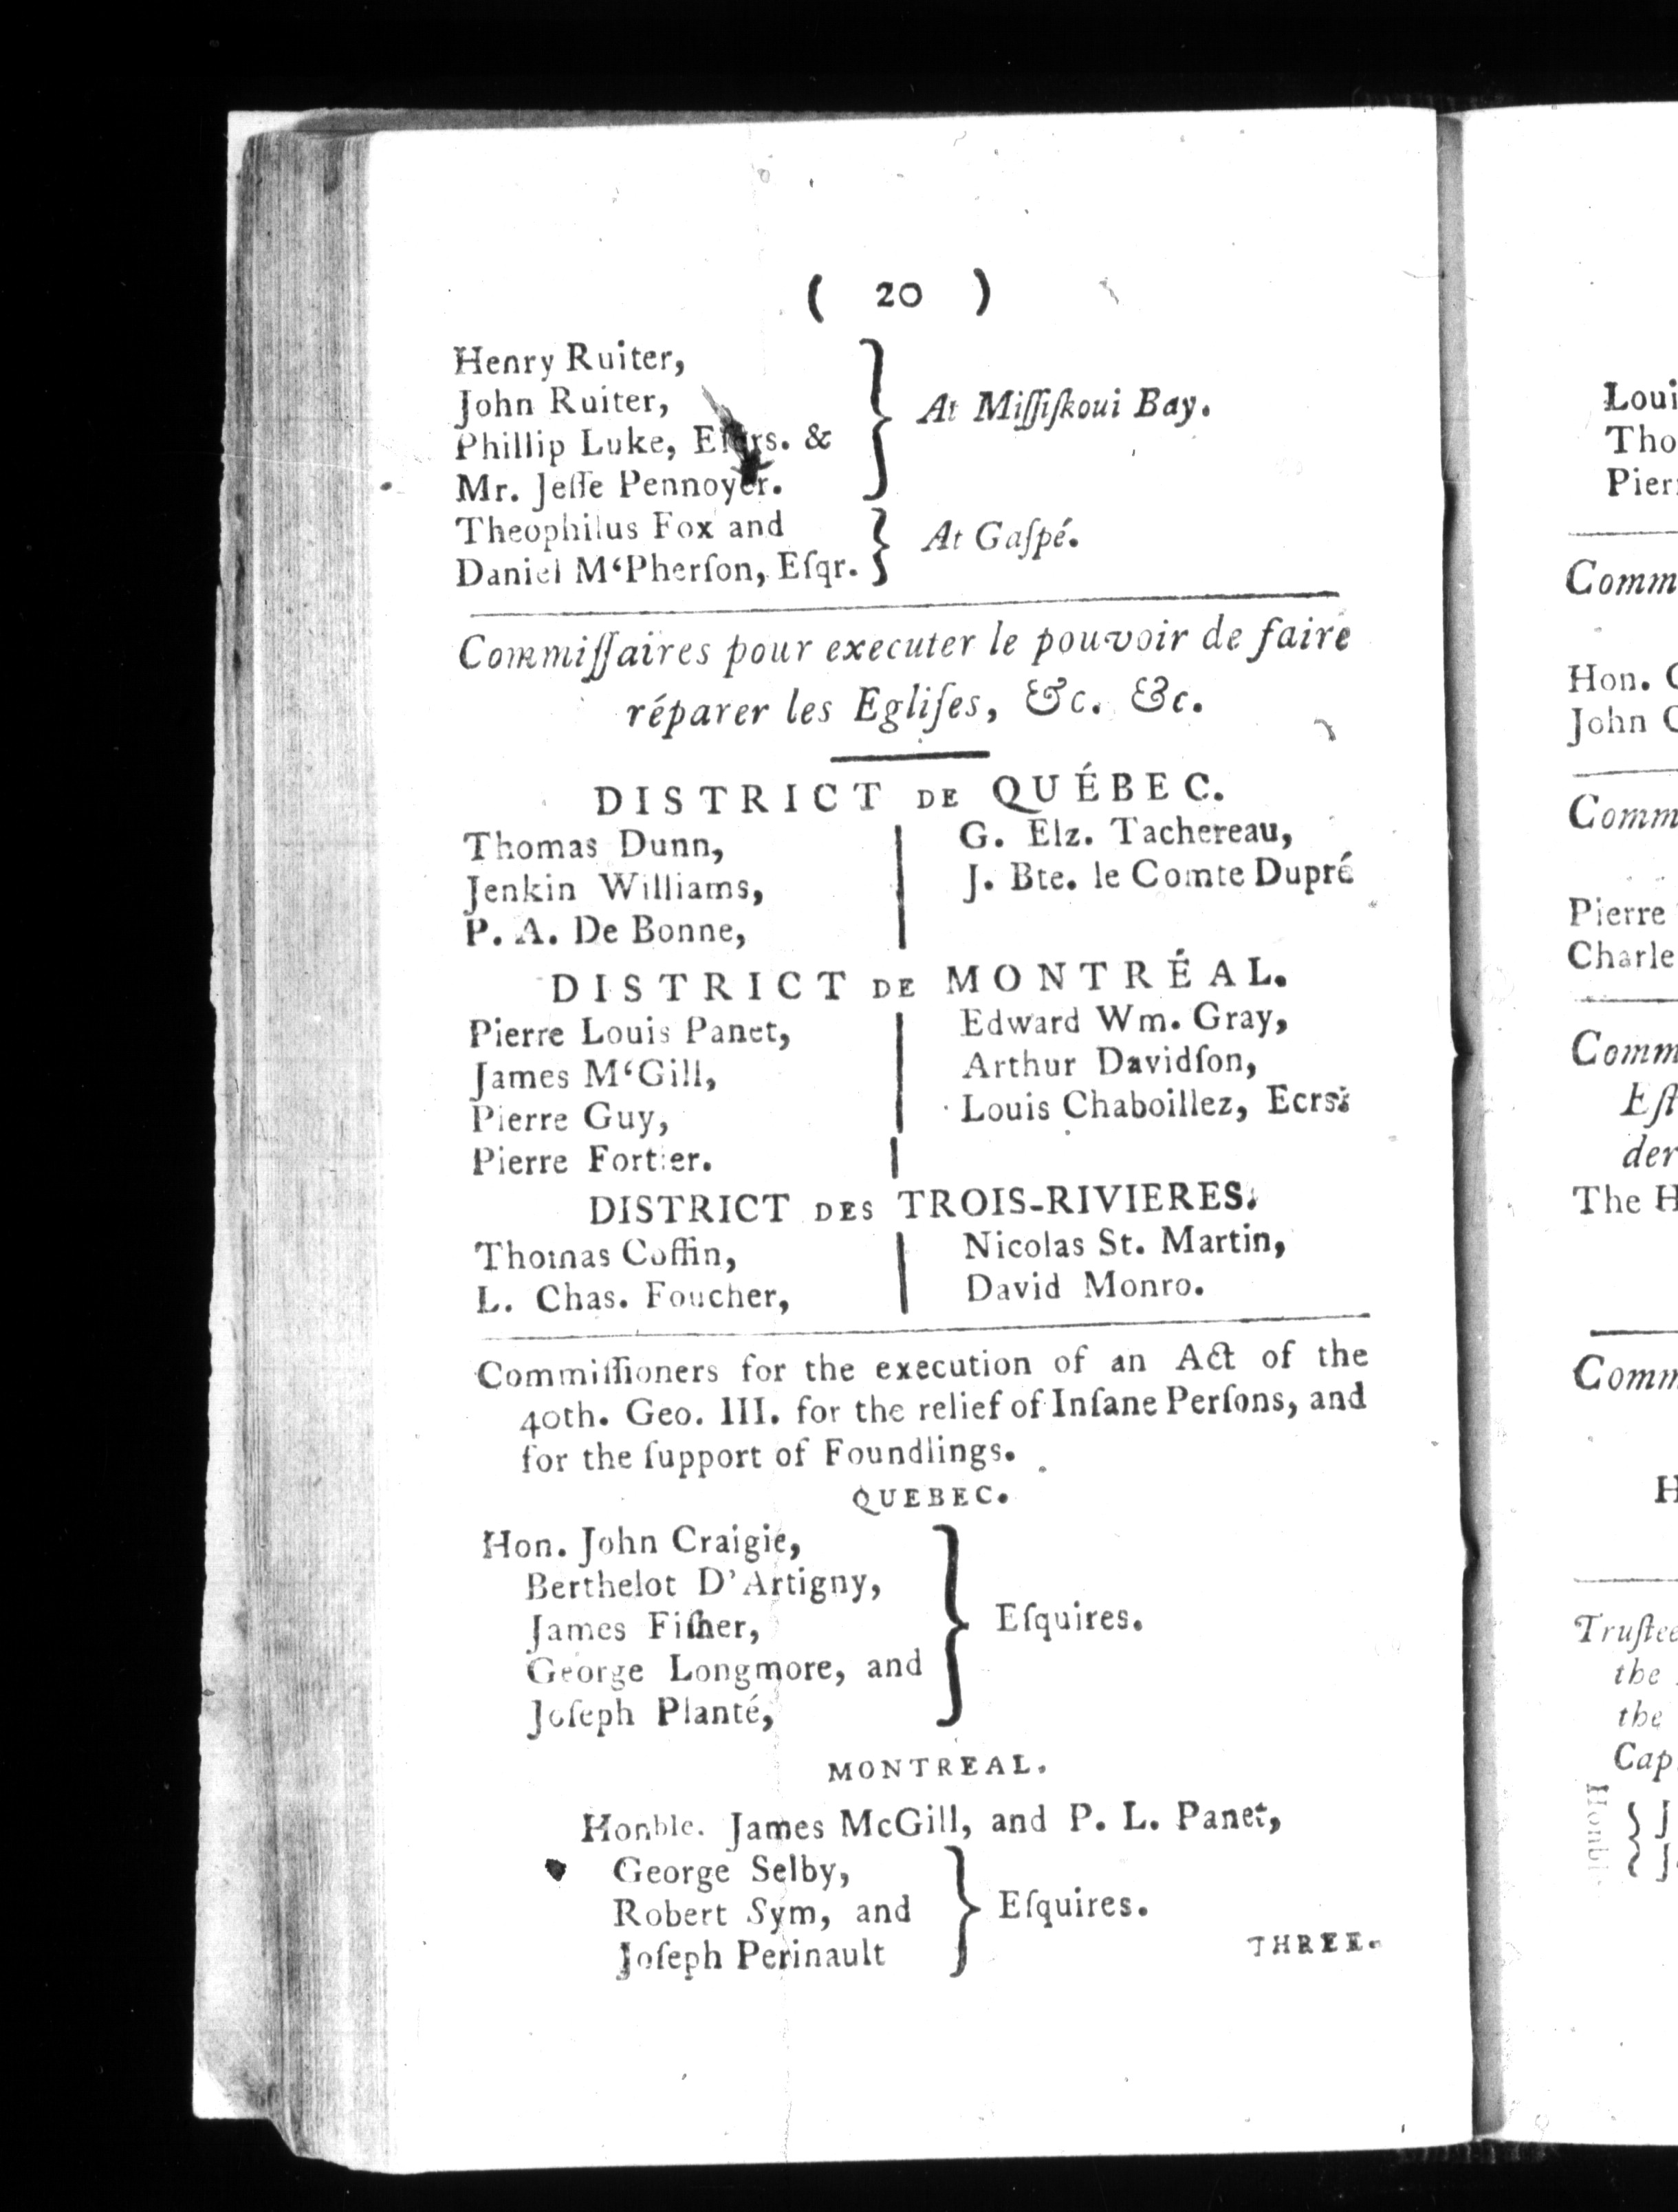 ( 20 )
Henry Ruiter,
John Ruiter,
Phillip Luke, Eſqrs. &
Mr. Jeſſe Pennoyer.
At Miſſiſkoui Bay.
Theophilus Fox and
Daniel M‘Pherſon, Eſqr.
At Gaſpé.
Commiſſaires pour executer le pouvoir de faire
réparer les Egliſes, &c. &c.
DISTRICT DE QUÉBEC.
Thomas Dunn,
Jenkin Williams,
P. A. De Bonne,
G. Elz. Tachereau,
J. Bte. le Comte Dupré
DISTRICT DE MONTRÉAL.
Pierre Louis Panet,
James M‘Gill,
Pierre Guy,
Pierre Fortier.
Edward Wm. Gray,
Arthur Davidſon,
Louis Chaboillez, Ecrs.
DISTRICT DES TROIS-RIVIERES.
Thomas Coffin,
L. Chas. Foucher,
Nicolas St. Martin,
David Monro.
Commiſſioners for the execution of an Act of the
40th. Geo. III. for the relief of Inſane Perſons, and
for the ſupport of Foundlings.
QUEBEC.
Hon. John Craigie,
Berthelot D'Artigny,
James Fiſher,
George Longmore, and
Joſeph Planté,
Eſquires.
MONTREAL.
Honble. James McGill, and P. L. Panet,
George Selby,
Robert Sym, and
Joſeph Perinault
Eſquires.
THREE.
Loui
Tho
Pier
Comm
Hon.
John
Comm
Pierre
Charle
Comm
Eſt
der
The H
Comm
H
Truſtee
the
the
Cap
Honbl
J
J